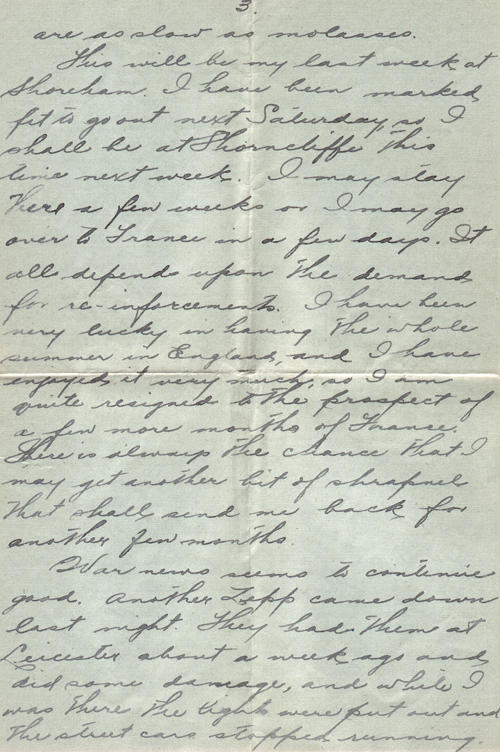 3.
are as slow as molasses.
This will be my last week at
Shoreham. I have been marked
fit to go out next Saturday, so I
shall be at Shorncliffe this
time next week. I may stay
there a few weeks or I may go
over to France in a few days. It
all depends upon the demand
for re-inforcements. I have been
very lucky in having the whole
summer in England, and I have
enjoyed it very much, so I am
quite resigned to the prospect of
a few more months of France.
There is always the chance that I
may get another bit of shrapnel
that shall send me back for
another few months.
War news seems to continue
good. Another Zepp came down
last night. They had them at
Leicester about a week ago and
did some damage, and while I
was there the lights were put out and
the street cars stopped running